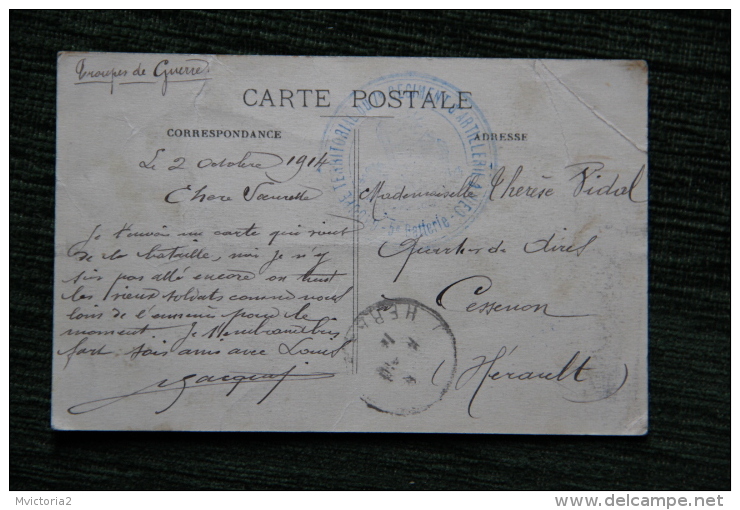 Troupes de Guerre
CARTE POSTALE
CORRESPONDANCE
ADRESSE
Le 2 octobre 1914
Chere Sœurette
Je t'envoie un carte qui vient
de la bataille, moi je n'y
suis pas allé encore on tient
les vieux soldats comme nous
loin de l'ennemi pour le
moment. Je t'embrasse bien
fort. Sois ami avec Louis
Jacques
Mademoiselle Therèse Vidal
Quartier de
à Cessenon
(Hérault)
TERRITORIAL DU REGIMENT D'ARTILLERIE
Batterie
HER
Mvictoria2
www.delcampe.net